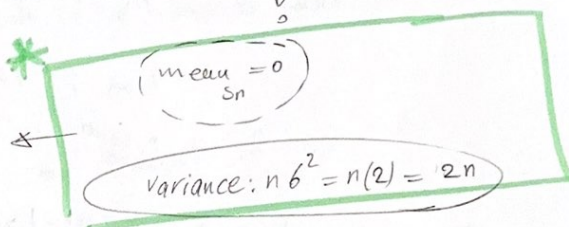 mean Sn = 0
variance: n6² = n(2) = 2n